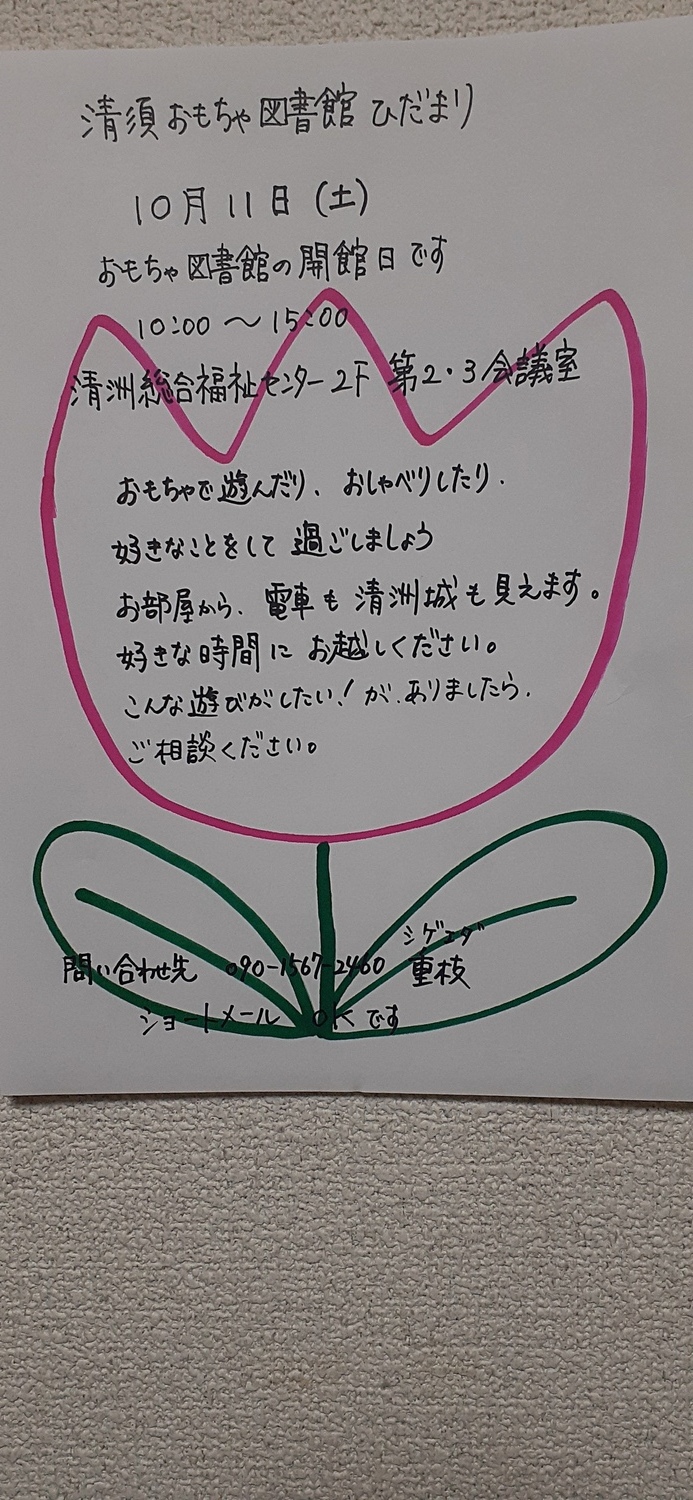 清須おもちゃ図書館 ひだまり
10月11日(土)
おもちゃ図書館の開館日です
10:00 〜 15:00
清洲総合福祉センター2F 第2・3会議室
おもちゃで遊んだり、おしゃべりしたり、
好きなことをして 過ごしましょう
お部屋から、電車も清洲城も見えます。
好きな時間に お越しください。
こんな遊びがしたい!が、ありましたら、
ご相談ください。
シゲエダ
問い合わせ先 090-1567-2460 重枝
ショートメール OKです